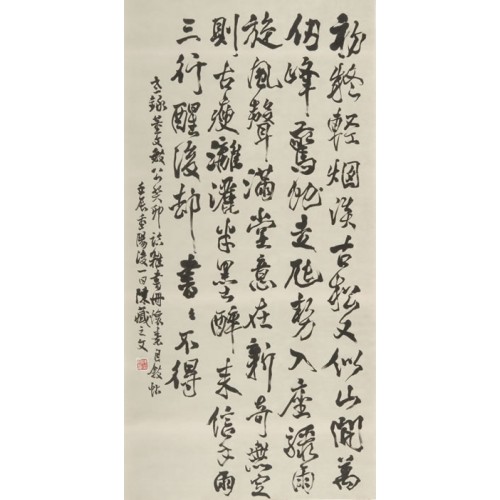 初疑輕烟淡古松又似山開萬
仞峰驚蛇走虺勢入座驟雨
旋風聲滿堂意在新奇無定
則古瘦灕灑半墨醉來信手兩
三行醒後却書〻不得
錄董文敏公癸卯臨雜書冊懷素自敘帖
壬辰重陽後一日陳之文